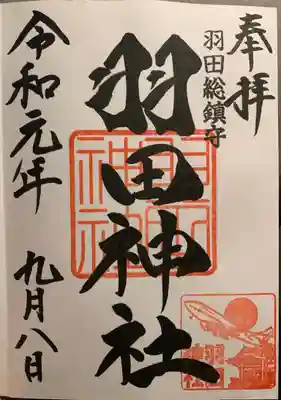 奉拝
羽田総鎮守
羽田神社
令和元年
九月八日
羽田神社